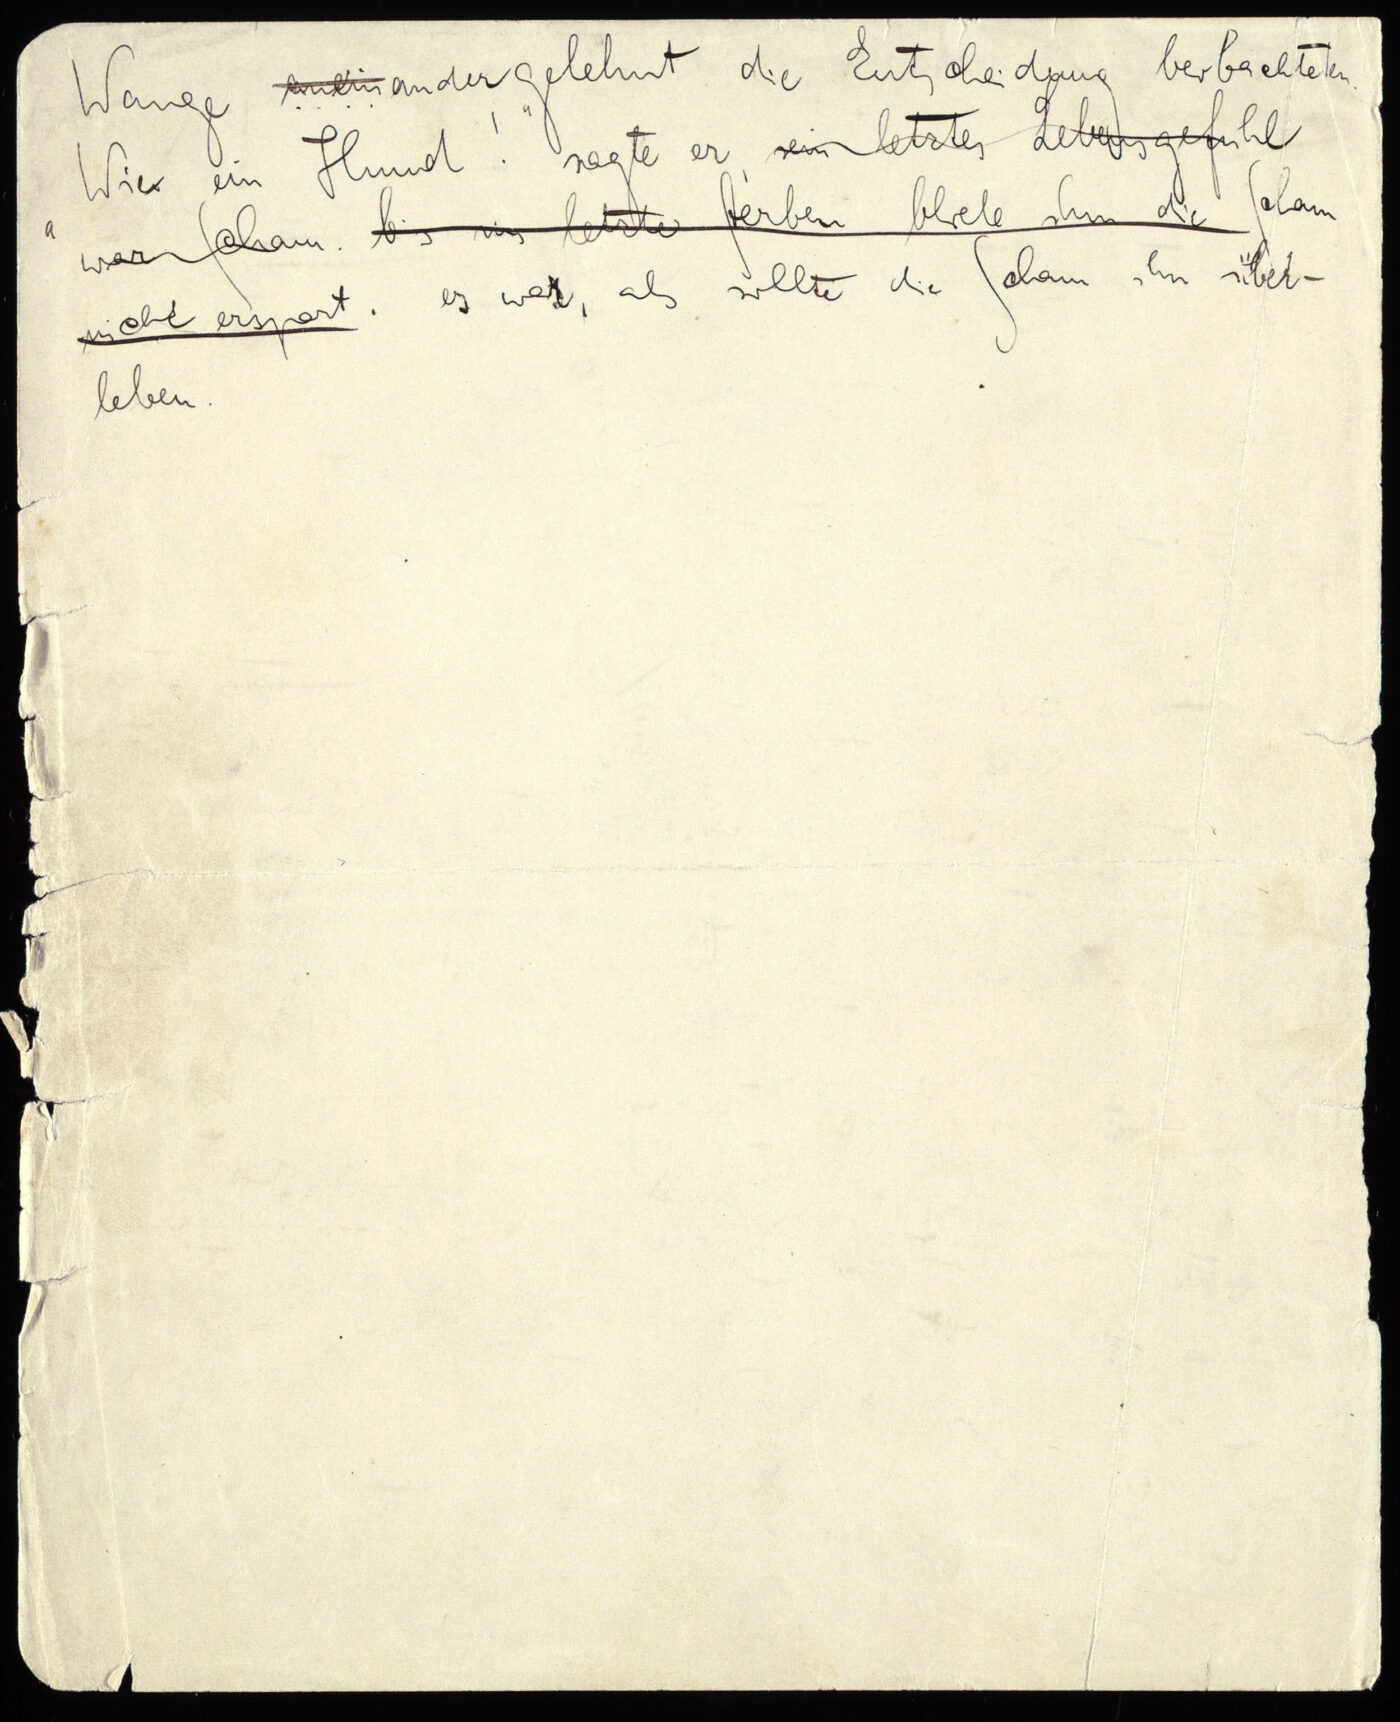 Wange anein andergelehnt die Entscheidung beobachteten.
"Wie ein Hund!" sagte er, sein letztes Lebensgefühl
war Scham. bis ins letzte Sterben blieb ihm die Scham
nicht erspart. es war, als sollte die Scham ihn über-
leben.